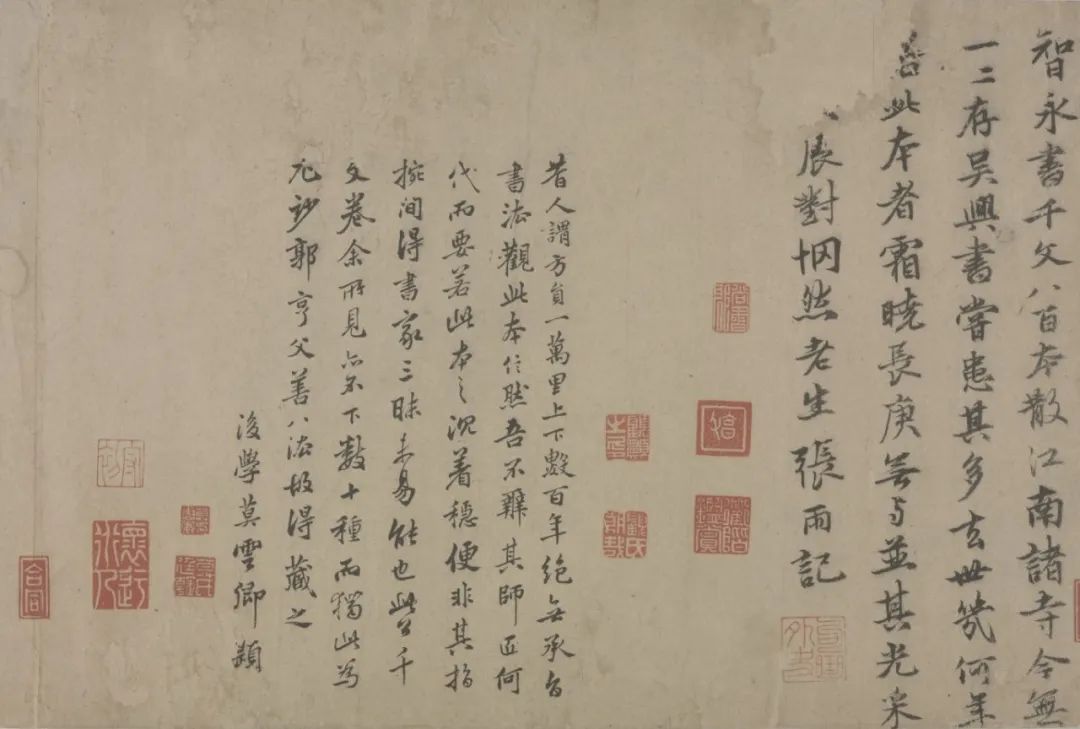 智永書千文八百本散江南諸寺今無
一二存吳興書嘗患其多去世幾何年
此本者霜曉長庚無与並其光采
展對惘然老生張雨記
句曲外史
昔人謂方員一萬里上下數百年絕無承旨
書法觀此本信然吾不難其師匠何
代而要若此本之沉着穩便非其指
腕間得書家三昧未易能也此公千
文卷余所見亦不下數十種而獨此為
尤妙郭亨父善八法故得藏之
後學莫雲卿題
合同